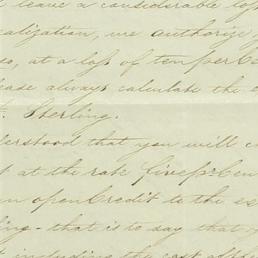 leave a considerable loss
alization, we authorize
so, at a loss of ten per Ce
ease always calculate the e
Sterling.
derstood that you will c
t at the rate five pr. Cen
n open Credit to the ex
ling - that is to say that
t including the cost